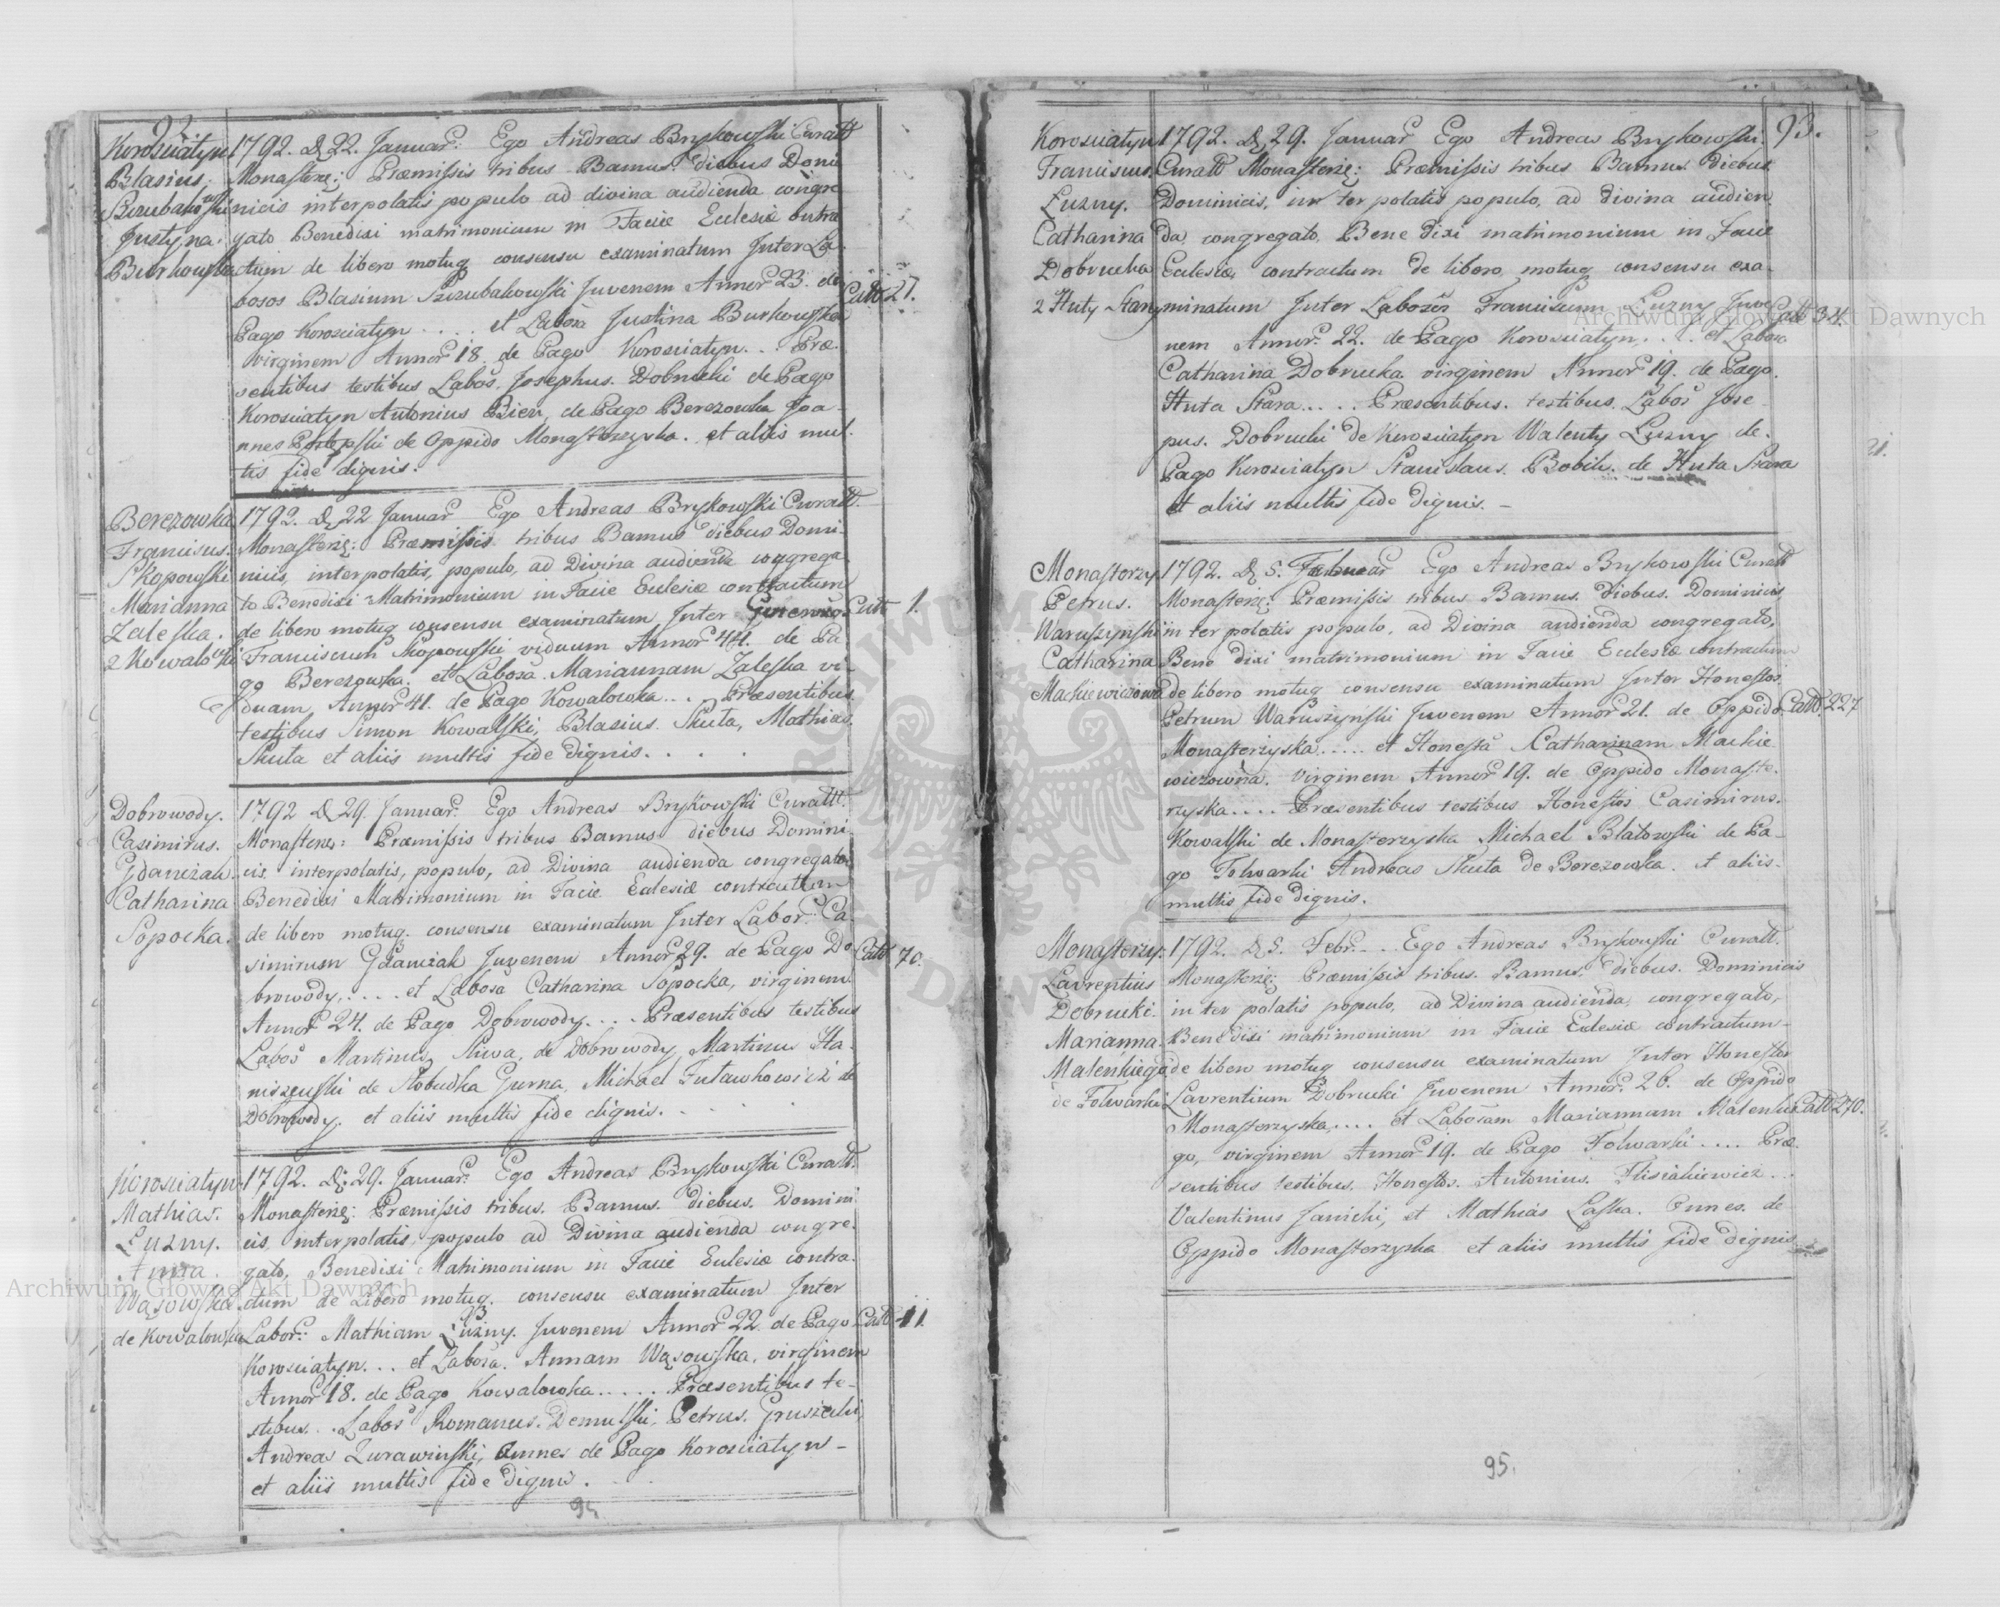 92
Korosciatyn
Blasius
Justyna
Burkowska
1792. d. 22. Januar: Ego Andreas Brykowski Curatt
Monasterz: Præmissis tribus Bannus diebus Domi
nicis interpolatis populo ad divina audienda congre
gato Benedixi matrimonium in Facie Eclesiæ contra
ctum de libero motuq consensu examinatum Inter La
bosos Blasium Juvenem Annor 23. de
Pago Korosciatyn .... et Labosa Justina Burkowska
virginem Annor 18. de Pago Korosciatyn ... Præ
sentibus testibus Labos. Josephus. Dobrucki de Pago
Korosciatyn Antonius Bien, de Pago Berezowka Joa-
nnes de Oppido Monasterzyska. et aliis mul
tis fide dignis.
Catt 27.
Berezowka
Francisus.
Skopowski
Marianna
Zaleska.
2 Kowalowki
1792. d. 22 Januar Ego Andreas Brykowski Curatt
Monasterz: Præmissis tribus Bannus diebus Domi-
nicis, interpolatis, populo, ad Divina audienda congrega
to Benedixi Matrimonium in Facie Eclesiæ contractum
de libero motuq consensu examinatum Inter
Franciscum Skopowski viduum Annor 44. de Pa
go Berezowka. et Labosa Mariannam Zaleska vi-
duam, Annor 41. de Pago Kowalowka ... Præsentibus
testibus Simon Kowalski, Blasius Skuta, Mathias
Skuta et aliis multis fide dignis. . . .
Catt 1.
Dobrowody.
Casimirus.
Gdanczak
Catharina
Sopocka.
1792 d. 29. Januar. Ego Andreas Brykowski Curatt.
Monasterz: Præmissis tribus Bannus diebus Domini
cis, interpolatis, populo, ad Divina audienda congregato
Benedixi Matrimonium in Facie Eclesiæ contractum
de libero motuq. consensu examinatum Inter Labor: Ca
simirum Gdanczak Juvenem Annor 29. de Pago Do
browody, .... et Labosa Catharina Sopocka, virginem
Annor 24. de Pago Dobrowody .... Præsentibus testibus
Labos Martinus Sliwa, de Dobrowody, Martinus Sta-
niszewski de Slobudka Gurna, Michael de
Dobrowody. et aliis multis fide dignis. . . . .
Catt 70.
Korosciatyn
Mathias.
Luzny.
Anna
Wąsowska
de Kowalowka
1792. d. 29. Januar. Ego Andreas Brykowski Curatt.
Monasterz: Præmissis tribus. Bannus. diebus. Domini
cis, interpolatis, populo ad Divina audienda congre-
gato, Benedixi Matrimonium in Facie Eclesiæ contra-
ctum de Libero motuq. consensu examinatum Inter
Labor: Mathiam Luzny. Juvenem Annor 22. de Pago
Korosciatyn... et Labosa. Annam Wąsowska, virginem
Annor 18. de Pago Kowalowka ..... Præsentibus te-
stibus... Labos Romanus. Demulski, Petrus.
Andreas Zurawinski, Omnes de Pago Korosciatyn-
et aliis multis fide dignis.
Catt 11.
94
93.
Korosciatyn
Franciscus.
Luzny.
Catharina
Dobrucka
2 Huty Stary
1792. d. 29. Januar Ego Andreas Brykowski.
Curatt Monasterz: Præmissis tribus Bannus diebus
Dominicis, interpolatis populo, ad divina audien
da, congregato, Benedixi matrimonium in Facie
Eclesiæ contractum de libero motuq consensu exa-
minatum Inter Labosos Franciscum Luzny Juve
nem Annor 22. de Pago Korosciatyn... et Labosa
Catharina Dobrucka virginem Annor 19. de Pago.
Huta Stara .... Præsentibus. testibus. Labos Jose-
pus. Dobrucki de Korosciatyn Walenty Luzny de.
Pago Korosciatyn Stanislaus. Bobik. de Huta Stara
et aliis multis fide dignis. -
Catt 34.
21.
Monasterzy
Petrus.
Waruszynski
Catharina
Mackiewiczowna
1792. d. 5. Februar Ego Andreas Brykowski Curatt
Monasterz: Præmissis tribus Bannus. diebus. Dominicis
interpolatis populo, ad Divina audienda congregato,
Benedixi matrimonium in Facie Eclesiæ contractum
de libero motuq consensu examinatum Inter Honestos
Petrum Waruszynski Juvenem Annor 21. de Oppido
Monasterzyska ..... et Honesta Catharinam Mackie
wiczowna. virginem Annor 19. de Oppido Monaste-
rzyska ..... Præsentibus testibus Honestos Casimirus.
Kowalski de Monasterzyska Michael Blatowski de Pa-
go Folwarki Andreas Skuta de Berezowka. et aliis
multis fide dignis.
Catt 227
Monasterzy.
Lavrentius
Dobrucki.
Marianna.
Malenkiego
de Folwarki
1792. d. 5. Febr. Ego Andreas Brykowski Curatt.
Monasterz: Præmissis tribus. Bannus. diebus. Dominicis
interpolatis populo, ad Divina audienda, congregato,
Benedixi matrimonium in Facie Eclesiæ contractum-
de libero motuq consensu examinatum Inter Honestos
Lavrentium Dobrucki Juvenem Annor. 26. de Oppido
Monasterzyska, .... et Labosam Mariannam Malenkie
go, virginem Annor 19. de Pago Folwarki .... Præ
sentibus testibus. Honestos. Antonius. ...
Valentinus Janicki, et Mathias Laska. Omnes. de
Oppido Monasterzyska et aliis multis fide dignis
Catt 270.
95.
Archiwum Główne Akt Dawnych
Archiwum Główne Akt Dawnych